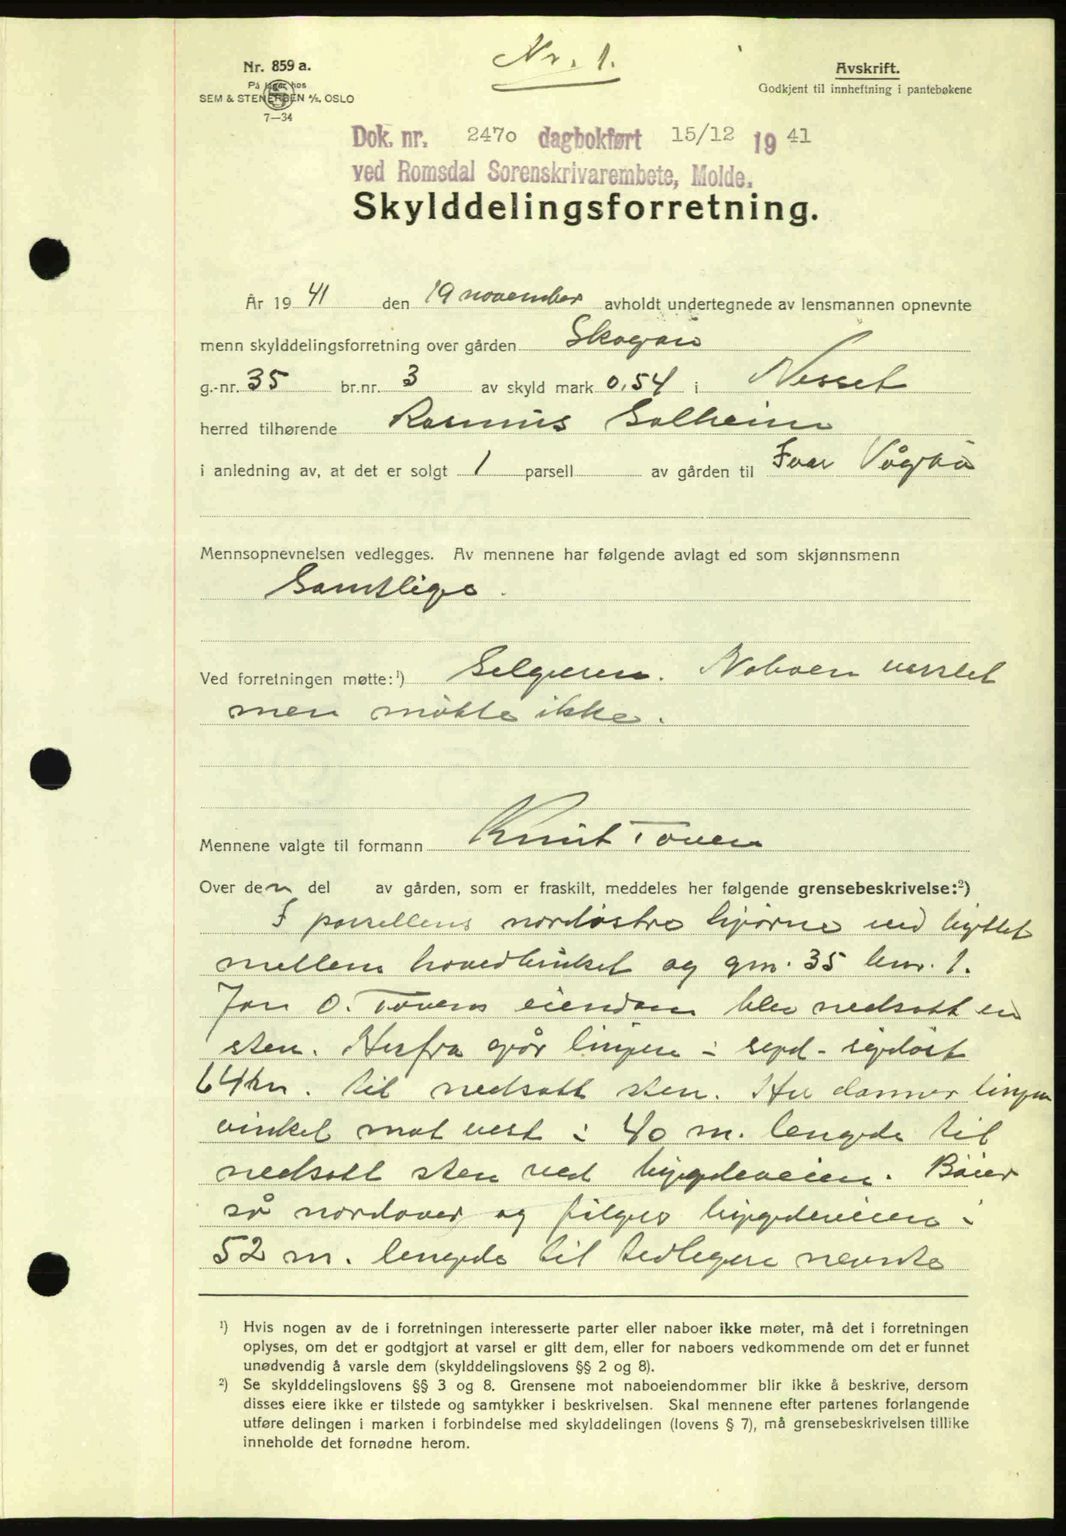 Nr. 1.
Nr. 859 a.
På lager hos
SEM & STENERSEN A/S, OSLO
7—34
Avskrift.
Godkjent til innheftning i pantebøkene
Dok. nr. 2470 dagbokført 15/12 1941
ved Romsdal Sorenskrivarembete, Molde.
Skylddelingsforretning.
År 1941 den 19 november avholdt undertegnede av lensmannen opnevnte
menn skylddelingsforretning over gården
g.-nr. 35 br.nr. 3 av skyld mark 0,54 i Nesset
herred tilhørende Rasmus Solheim
i anledning av, at det er solgt 1 parsell av gården til Ivar
Mennsopnevnelsen vedlegges. Av mennene har følgende avlagt ed som skjønnsmenn
Samtlige.
Ved forretningen møtte:¹) Selgeren. Naboen varslet
men møtte ikke.
Mennene valgte til formann Knut Toven
Over den del av gården, som er fraskilt, meddeles her følgende grensebeskrivelse:²)
I parsellens nordøstre hjørne ved byttet
mellem hovedbruket og gnr. 35 bnr. 1.
Jon O. Tovens eiendom blev nedsatt en
sten. Herfra går linjen i syd-sydøst
64 m. til nedsatt sten. Her danner linjen
vinkel mot vest i 40 m. lengde til
nedsatt sten ved bygdeveien. Bøier
så nordover og følger bygdeveien i
52 m. lengde til tidligere nevnte
¹) Hvis nogen av de i forretningen interesserte parter eller naboer ikke møter, må det i forretningen
oplyses, om det er godtgjort at varsel er gitt dem, eller for naboers vedkommende om det er funnet
unødvendig å varsle dem (skylddelingslovens §§ 2 og 8).
²) Se skylddelingslovens §§ 3 og 8. Grensene mot naboeiendommer blir ikke å beskrive, dersom
disses eiere ikke er tilstede og samtykker i beskrivelsen. Skal mennene efter partenes forlangende
utføre delingen i marken i forbindelse med skylddelingen (lovens § 7), må grensebeskrivelsen tillike
inneholde det fornødne herom.